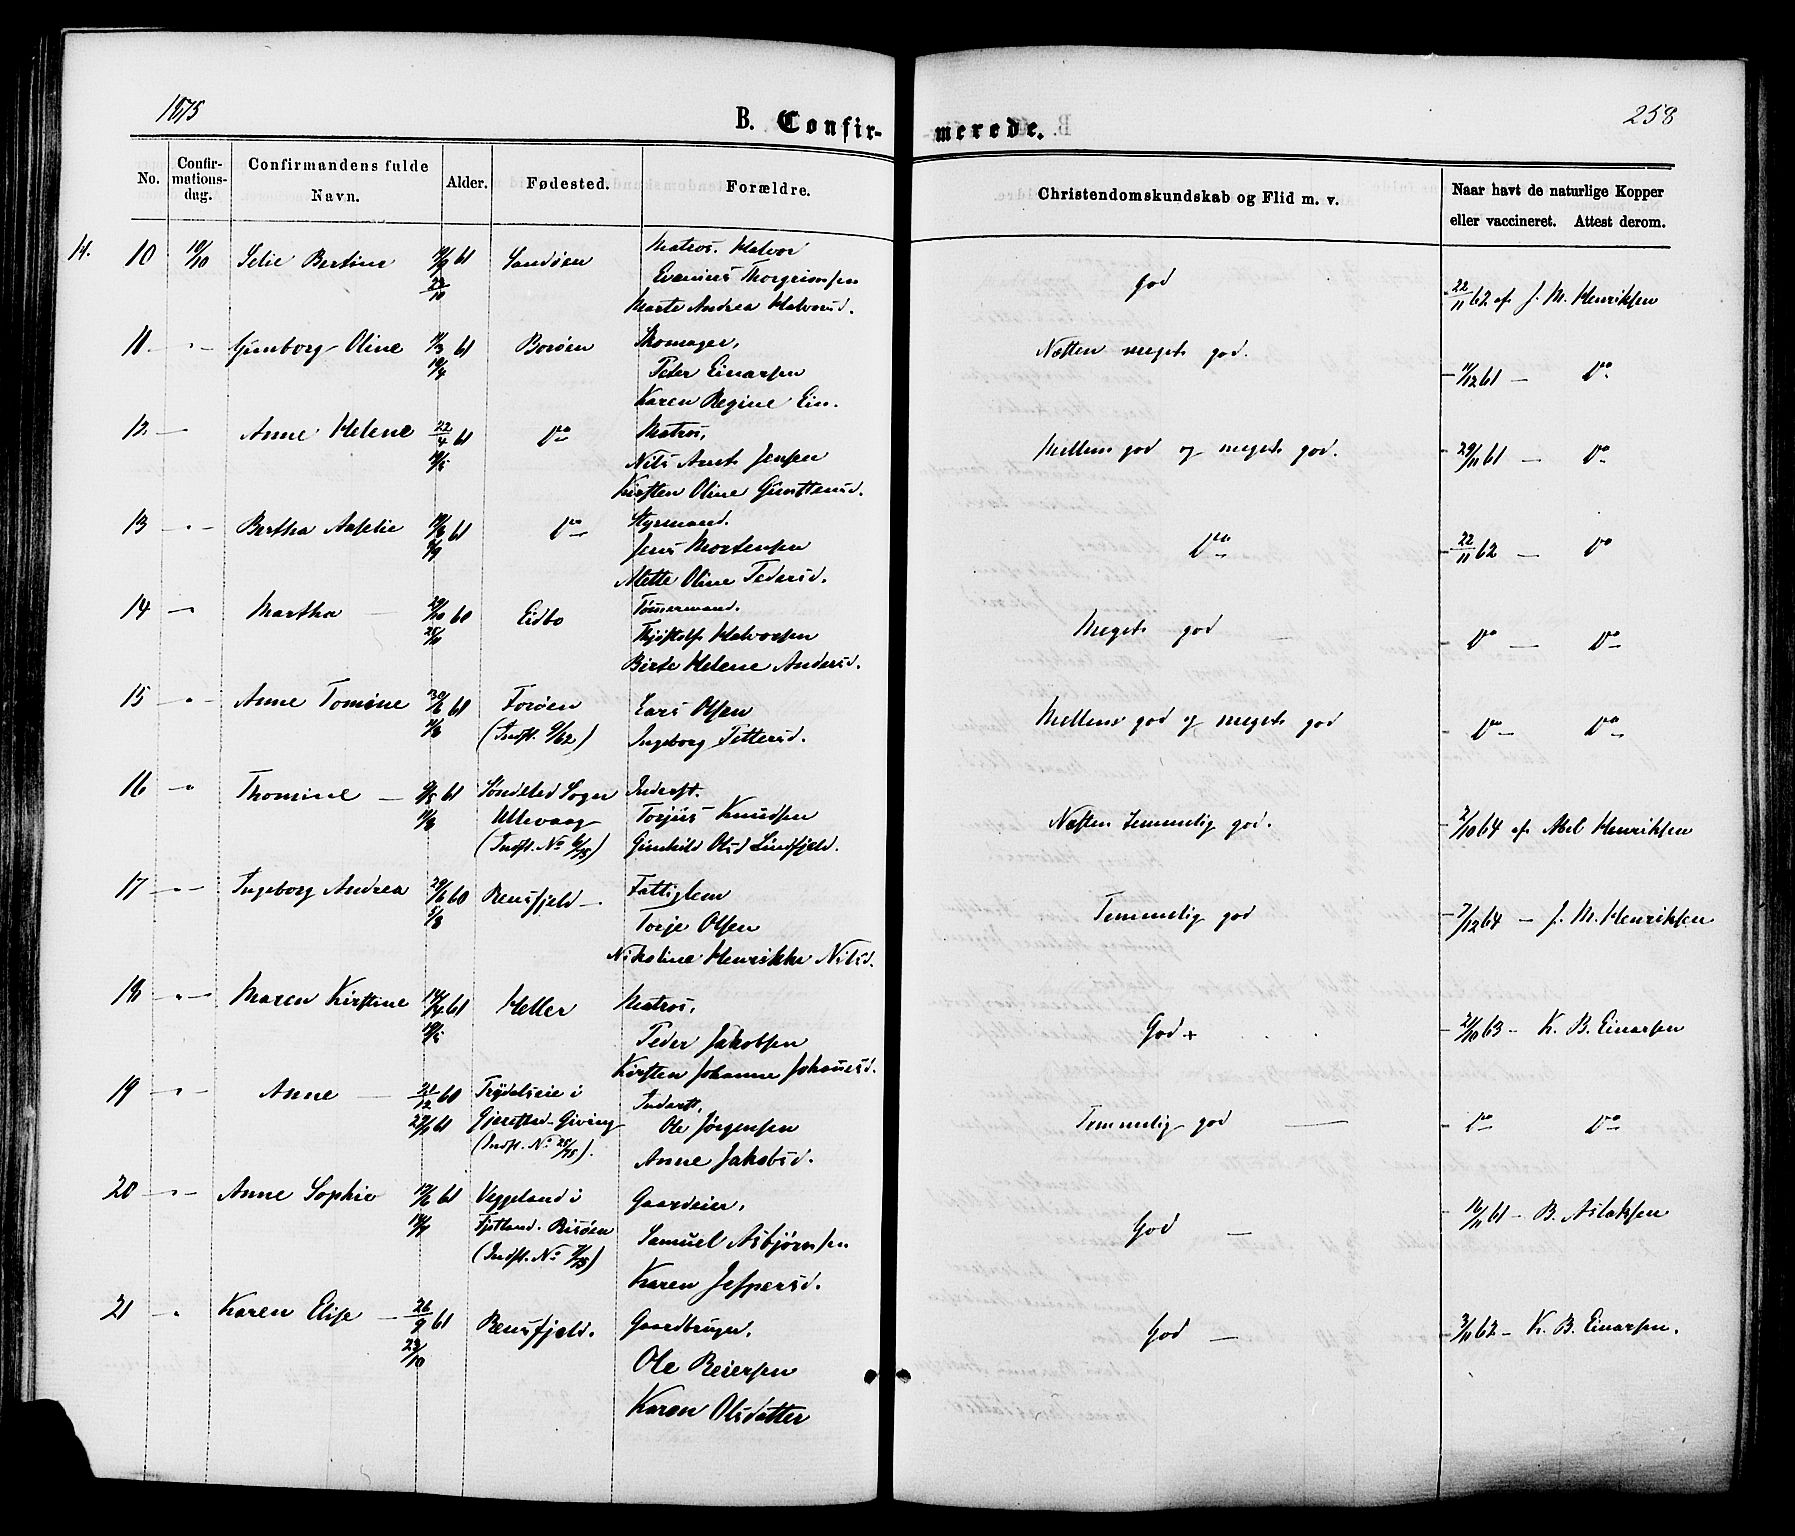 1875
B. Confir-
merede.
258
No.
Confir-
mations-
dag.
Confirmandens fulde
Navn.
Alder.
Fødested.
Forældre.
Christendomskundskab og Flid m. v.
Naar havt de naturlige Kopper
eller vaccineret. Attest derom.
14. 10 10/10 Bertine 61 Sandøen Matros. Halvor
Thorgrimsen
Marte Andrea Halvorsd.
god
22/11 62 af J. M. Henriksen
11 — " — Gunborg Oline 11/3 61 Borøen
19/4 Peter Einarsen
Karen Regine Ein.
Næsten meget god.
11/12 61 — Do
12 — Anne Helene 22/4 61 Do Matros,
Nils Arnt Jensen
Kirsten Oline
Mellem god og meget god.
29/11 61 — Do
13 — " — Bertha 61 Do Styrmand.
Jens Mortensen
Mette Oline Pedersd.
Do
22/11 62 — Do
14 — " — Martha — 29/10 60 Eidbo Tømmermand.
Halvorsen
Birte Helene Andersd.
Meget god —
Do — Do
15 " Anne Tomine 30/6 61 Forøen Lars Olsen
(Indfl. 9/62) Ingeborg
Mellem god og meget god
Do Do
16 " Thomine — 61 Søndeled Sogn Inderst.
Ullevaag Torjus Knudsen
(Indfl. No 6/75) Gunhild Olsd Lindfjeld.
Næsten temmelig god.
2/10 64 af Abel Henriksen
17 — " — Ingeborg Andrea 29/6 60 Rensfjeld — Fattiglem
5/8 Torje Olsen
Nikoline Henrikke Nilsd.
Temmelig god
7/12 64 — J. M. Henriksen
18 — " — Maren Kirstine 14/4 61 Heller Matros,
Peder Jakobsen
Kirsten Johanne Johannesd.
God +
2/10 63 — K. B. Einarsen
19 — " — Anne — 21/12 60 i Inderst,
61 Gjerestad — Giving Ole Jørgensen
(Indfl. No 25/75). Anne Jakobsd.
Temmelig god —
Do Do
20 — " — Anne Sophie 17/6 61 Veggeland i Gaardeier,
Risøen Samuel Asbjørnsen
(Indfl. No 7/75) Karen Jespersd.
God —
16/11 61 — B. Aslaksen
21 — " Karen Elise — 26/9 61 Rensfjeld. Gaardbruger,
23/10 Ole Reiersen
Karen Olsdatter
God —
3/11 62 — K. B. Einarsen.